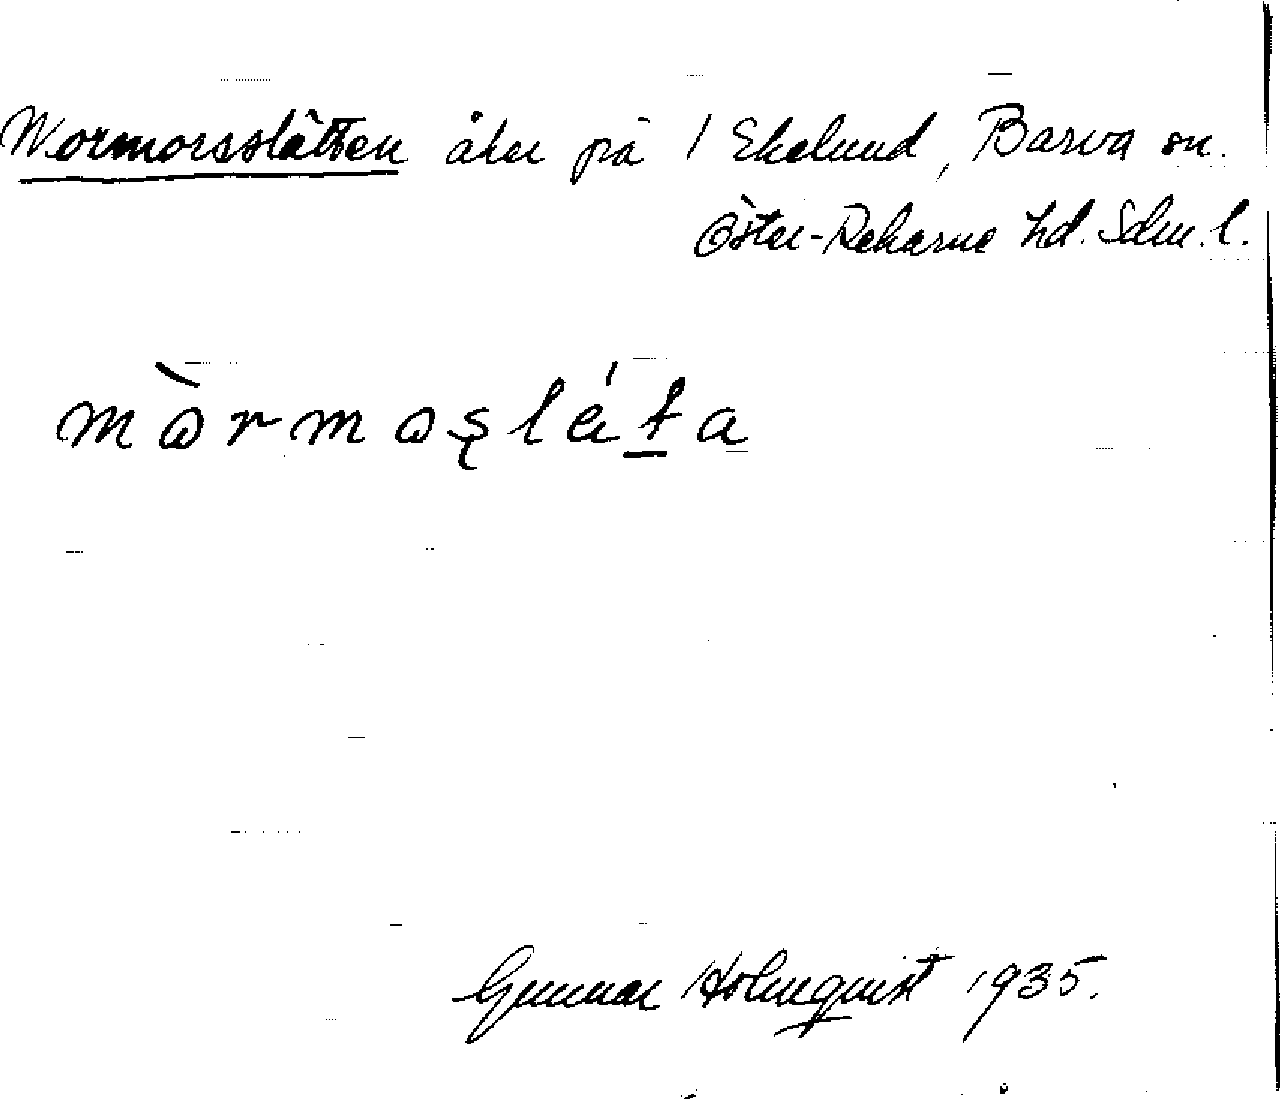 Mormorsslätten åker på 1 Ekelund, Barva sn.
Öster-Rekarne hd. Sdm. l.
mòrmoșléta
Gunnar Holmquist 1935.